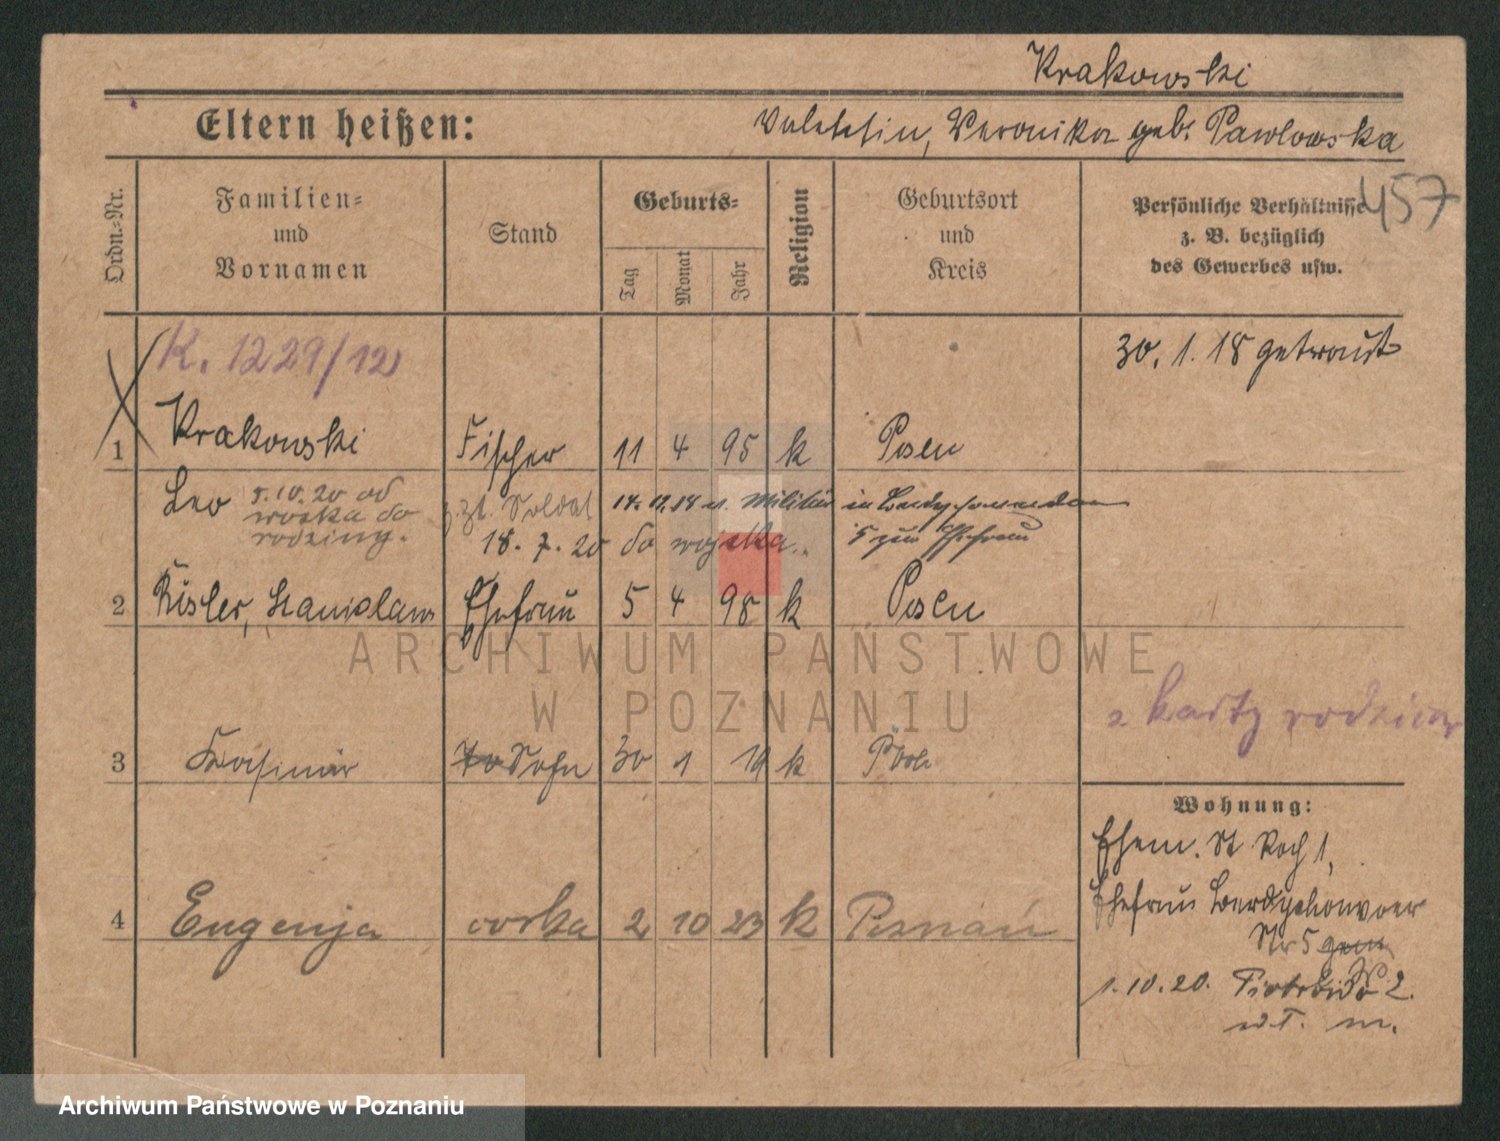 Krakowski
Eltern heißen: Valentin, Veronika geb. Pawlowska
457
Ordn.-Nr.
Familien-
und
Vornamen
Stand
Geburts-
Tag
Monat
Jahr
Religion
Geburtsort
und
Kreis
Persönliche Verhältnisse
z. B. bezüglich
des Gewerbes usw.
K. 1229/12
30. 1. 18 getraut
1 Krakowski Fischer 11 4 95 k Posen
Leo 5.10.20 od
wojska do
rodziny.
z. Zt. Soldat 14.12.18 v. Militär in
18. 7. 20 do wojska. 5 zur Ehefrau
2 Kisler, Stanislawa Ehefrau 5 4 98 k Posen
ARCHIWUM PAŃSTWOWE
W POZNANIU
z karty rodziców
3 Kasimir Sohn 30 1 19 k
Wohnung:
Ehem. St Roch 1,
Ehefrau
Nr 5
4 Eugenja córka 2 10 23 k Poznań
1.10.20. 2.
m.
Archiwum Państwowe w Poznaniu